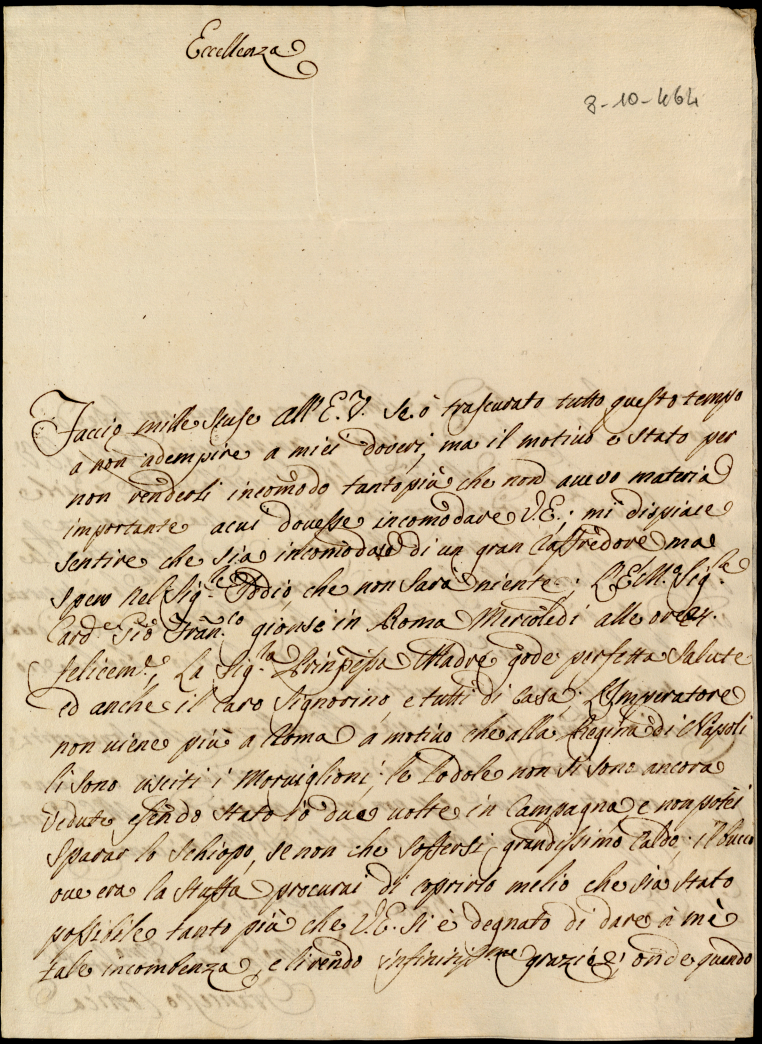 Eccellenza
8-10-464
Faccio mille scuse all'E.V. se ò trascurato tutto questo tempo
a non adempire a miei doveri, ma il motivo è stato per
non renderli incomodo tanto più che non avevo materia
importante acui dovesse incomodare V.E.; mi dispiace
sentire che sia incomodato di un gran Raffredore ma
spero nel Sig.re Iddio, che non sarà niente. L'E.mo Sig.re
Card.e Gio Fran.co gionse in Roma Mercoledì alle ore 24.
felicem.e, La Sig.ra Prinpessa Madre gode perfetta salute
ed anche il caro Signorino, e tutti di casa; L'Imperatore
non viene più a Roma à motivo che alla Regina di Napoli
li sono usciti i Morviglioni; le Lodole non si sono ancora
vedute essendo stato io due volte in Campagna, e non potei
sparar lo schiopo, se non che soffersi grandissimo caldo; il bucco
ove era la stuffa, procurai di coprirlo melio che sia stato
possibile tanto più che V.E. si è degnato di dare à me
tale incombenza, e li rendo infinitiss.me grazie; onde quando